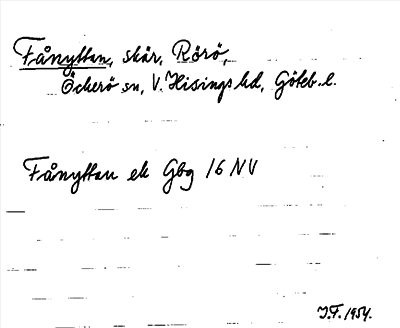 Fånyttan, skär, Rörö,
Öckerö sn, V. Hisings hd, Göteb. l.
Fånyttan ek Gbg 16 NV
J.F. 1954.